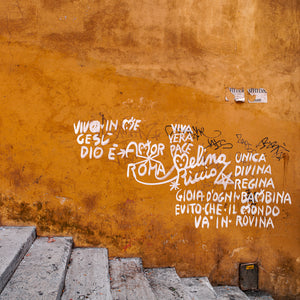 VIVO IN ME
GESÙ
DIO È → AMOR
ROMA
VIVA
VERA
PACE
Melina
Riccio
UNICA
DIVINA
REGINA
GIOIA D'OGNI BAMBINA
EVITO CHE IL MONDO
VA' IN ROVINA